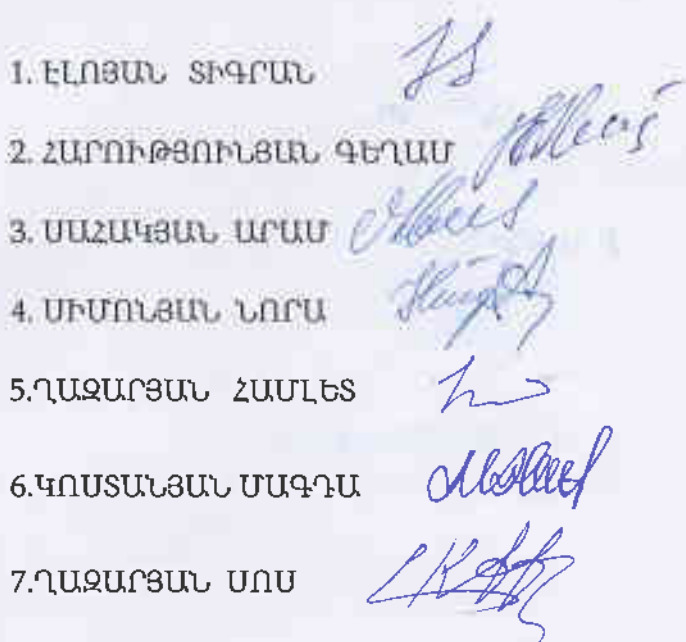 1. ԷԼՈՅԱՆ ՏԻԳՐԱՆ
2. ՀԱՐՈՒԹՅՈՒՆՅԱՆ ԳԵՂԱՄ
3. ՍԱՀԱԿՅԱՆ ԱՐԱՄ
4. ՍԻՄՈՆՅԱՆ ՆՈՐԱ
5.ՂԱԶԱՐՅԱՆ ՀԱՄԼԵՏ
6.ԿՈՍՏԱՆՅԱՆ ՄԱԳԴԱ
7.ՂԱԶԱՐՅԱՆ ՍՈՍ